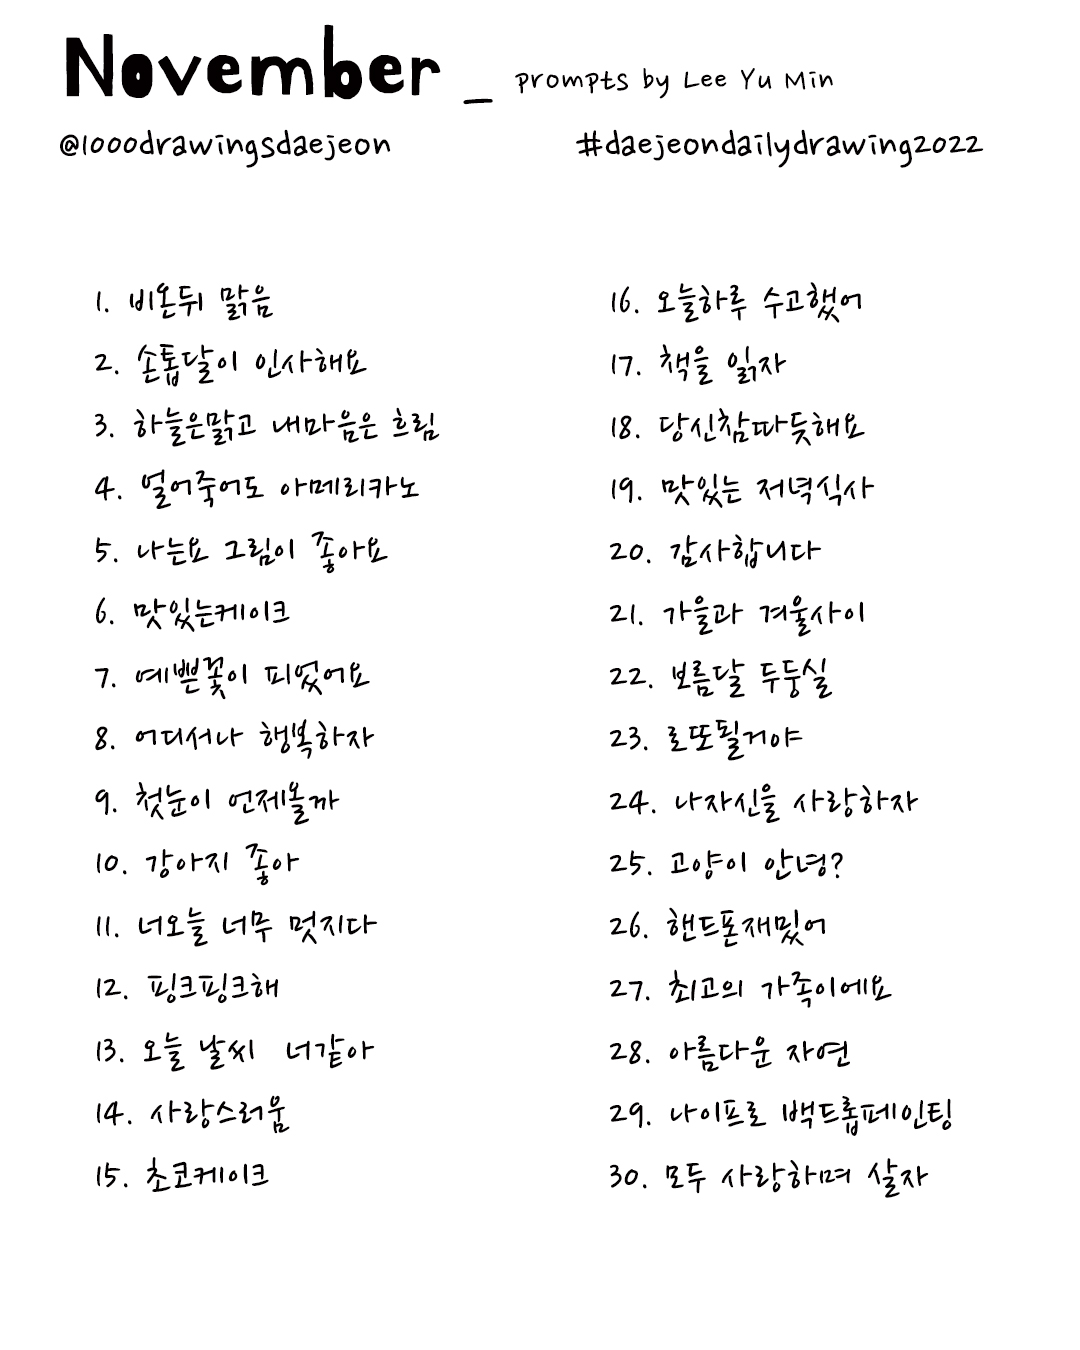 November _ prompts by Lee Yu Min
@1000drawingsdaejeon #daejeondailydrawing2022
1. 비온뒤 맑음
2. 손톱달이 인사해요
3. 하늘은맑고 내마음은 흐림
4. 얼어죽어도 아메리카노
5. 나는요 그림이 좋아요
6. 맛있는케이크
7. 예쁜꽃이 피었어요
8. 어디서나 행복하자
9. 첫눈이 언제올까
10. 강아지 좋아
11. 너오늘 너무 멋지다
12. 핑크핑크해
13. 오늘 날씨 너같아
14. 사랑스러움
15. 초코케이크
16. 오늘하루 수고했어
17. 책을 읽자
18. 당신참따듯해요
19. 맛있는 저녁식사
20. 감사합니다
21. 가을과 겨울사이
22. 보름달 두둥실
23. 로또될거야
24. 나자신을 사랑하자
25. 고양이 안녕?
26. 핸드폰재밌어
27. 최고의 가족이에요
28. 아름다운 자연
29. 나이프로 백드롭페인팅
30. 모두 사랑하며 살자